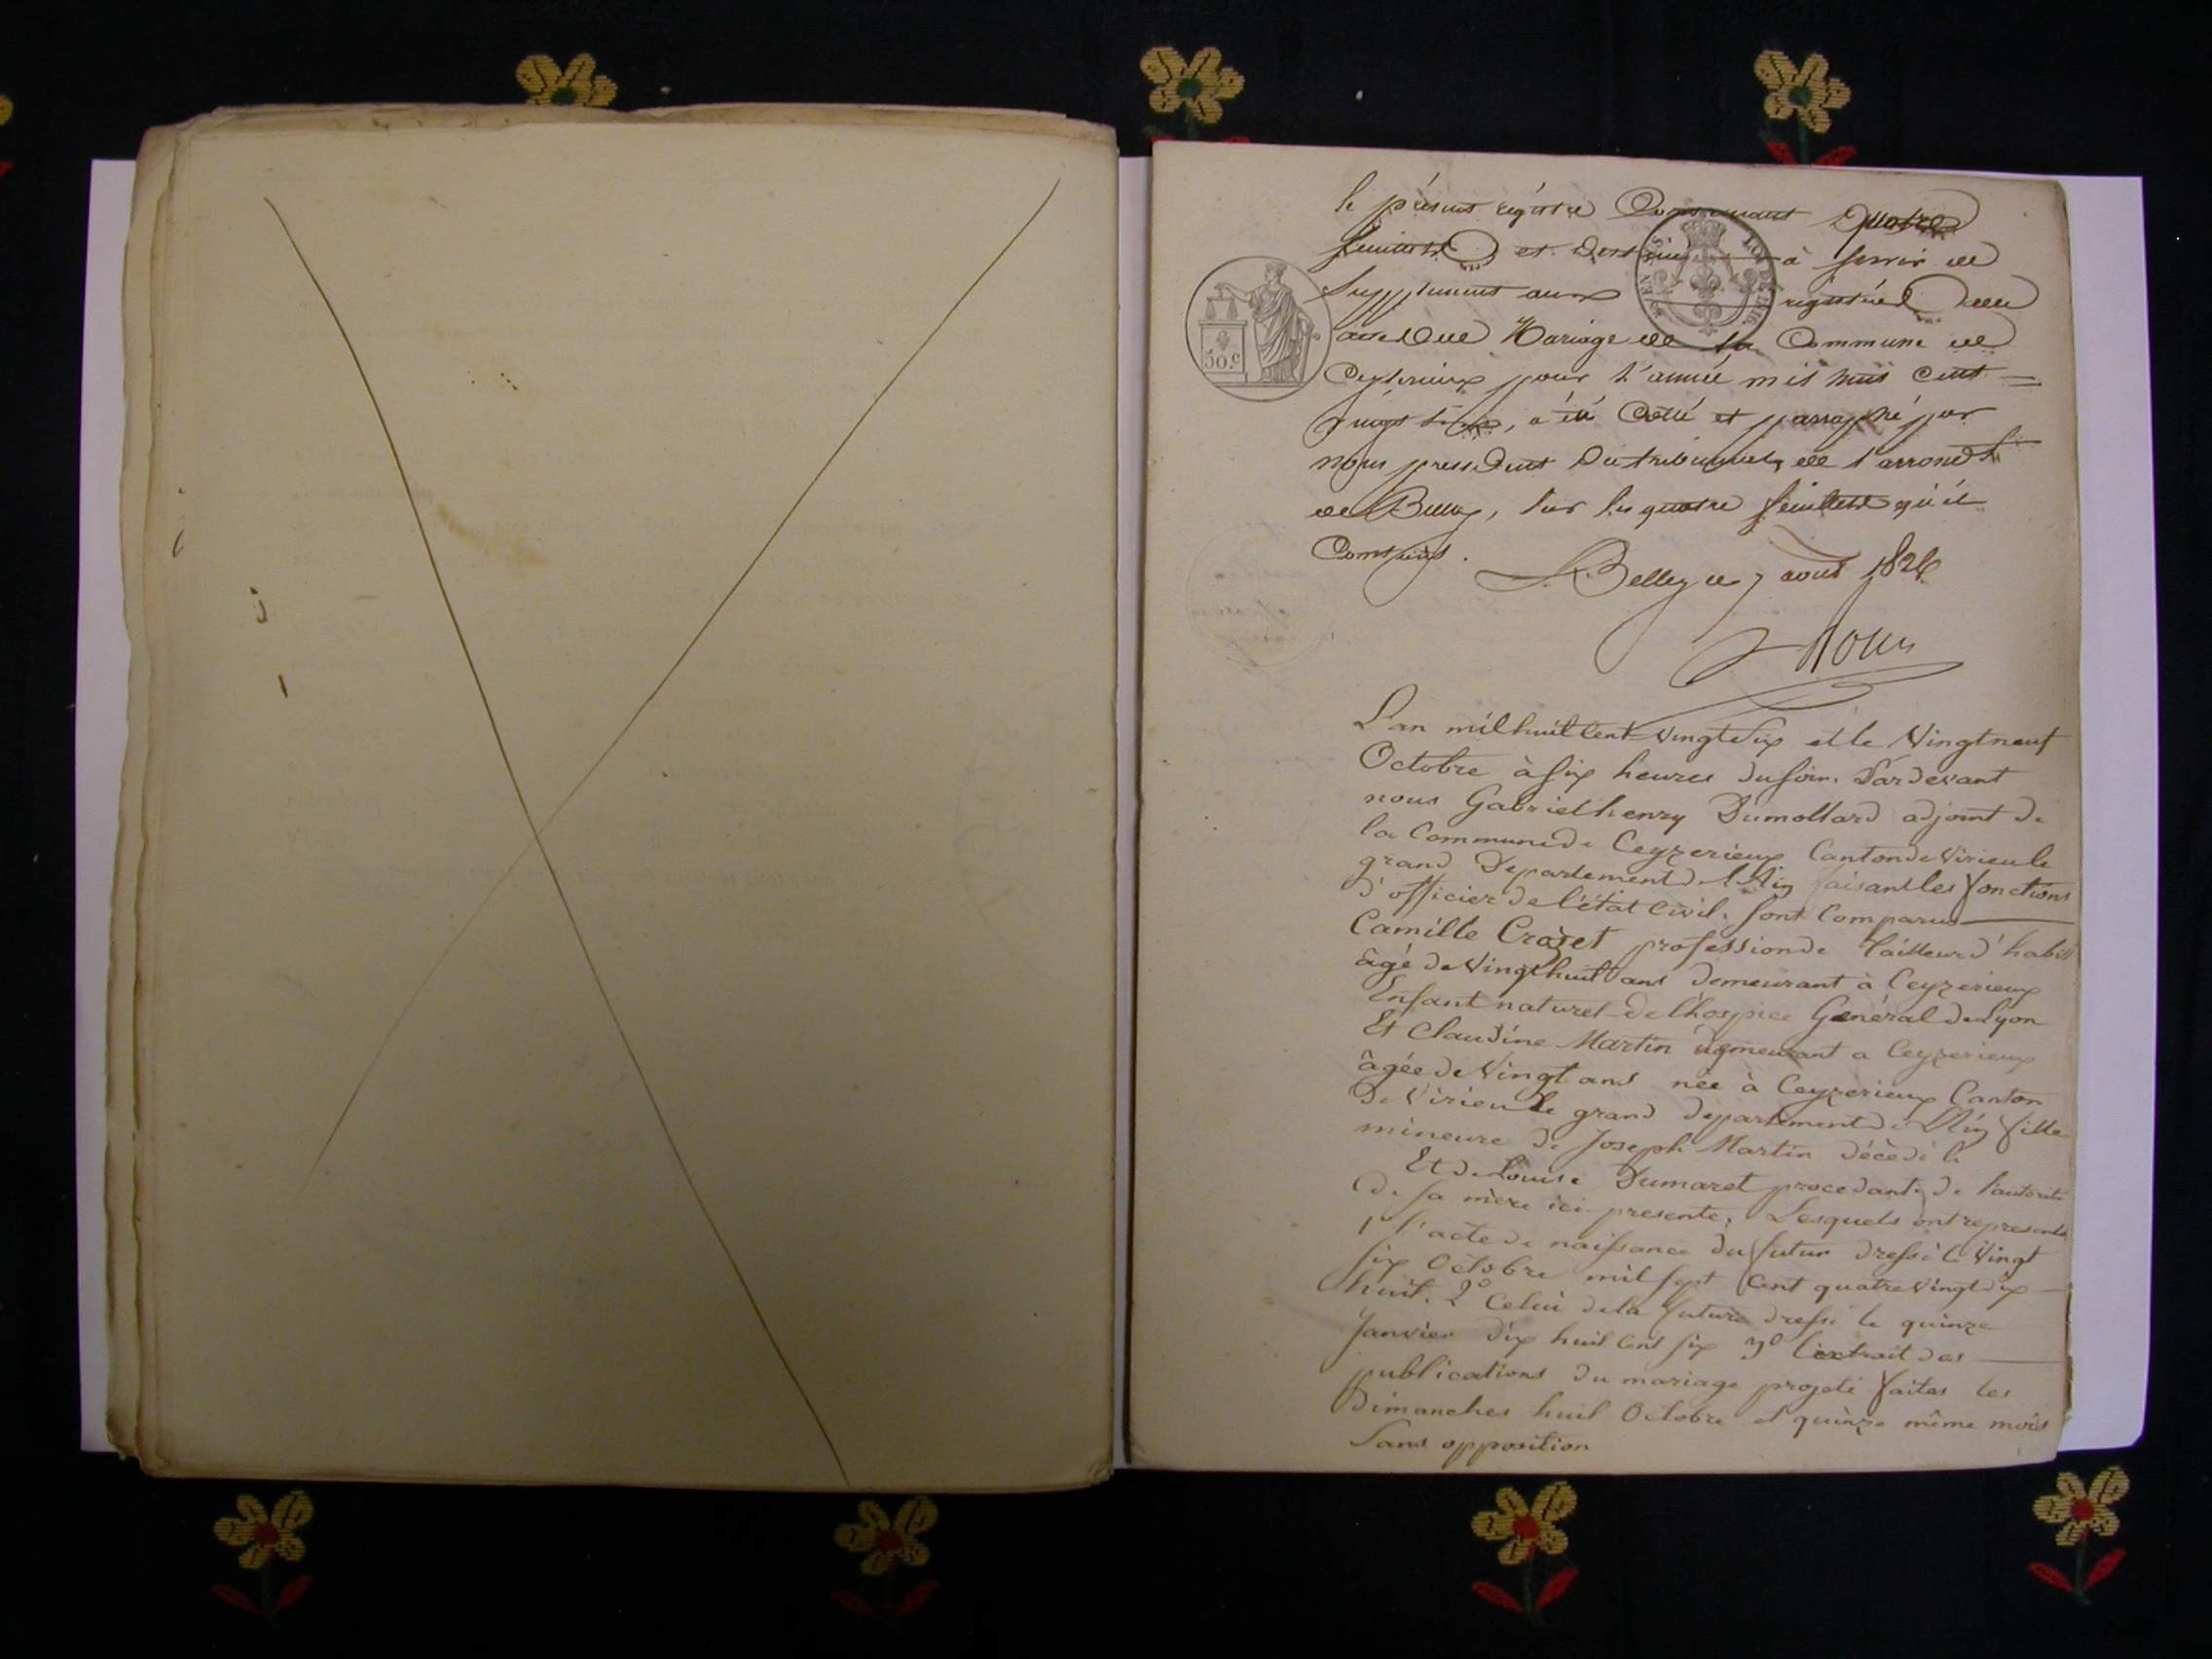 le présent régistre Contenant Quatre
feuillets et destiné à servir de
Supplément aux registres des
actes de Mariage de la Commune de
Ceyzerieux pour l'année mil huit cent
vingt six, a été Cotté et parraphé par
nous president du tribunal de l'arrondt
de Belley, sur les quatre feuillets qu'il
Contient.
Belley le 7 aout 1826
50.c
L'an mil huit Cent Vingt Six et le Vingt neuf
Octobre à six heures du soir. Pardevant
nous Gabriel henry Dumollard adjoint de
la Commune de Ceyzerieux Canton de Virieu le
grand Departement de l'Ain faisant les fonctions
d'officier de l'état Civil. Sont Comparus
Camille Crozet profession de tailleur d'habits
âgé de Vingt huit ans demeurant à Ceyzerieux
Enfant naturel de l'hospice Général de Lyon
Et Claudine Martin demeurant a Ceyzerieux
âgée de Vingt ans née à Ceyzerieux Canton
De Virieu le grand département de l'Ain fille
mineure de Joseph Martin décédé le
Et de Louise Dumaret procedante de l'autorité
De sa mère ici presente. Lesquels ont représenté
1° l'acte de naissance du futur dressé le Vingt
six Octobre mil sept Cent quatre Vingt dix
huit. 2° Celui de la future dressé le quinze
Janvier dix huit cent six 3° l'extrait des
publications du mariage projeté faites les
Dimanches huit Octobre et quinze même mois
Sans opposition